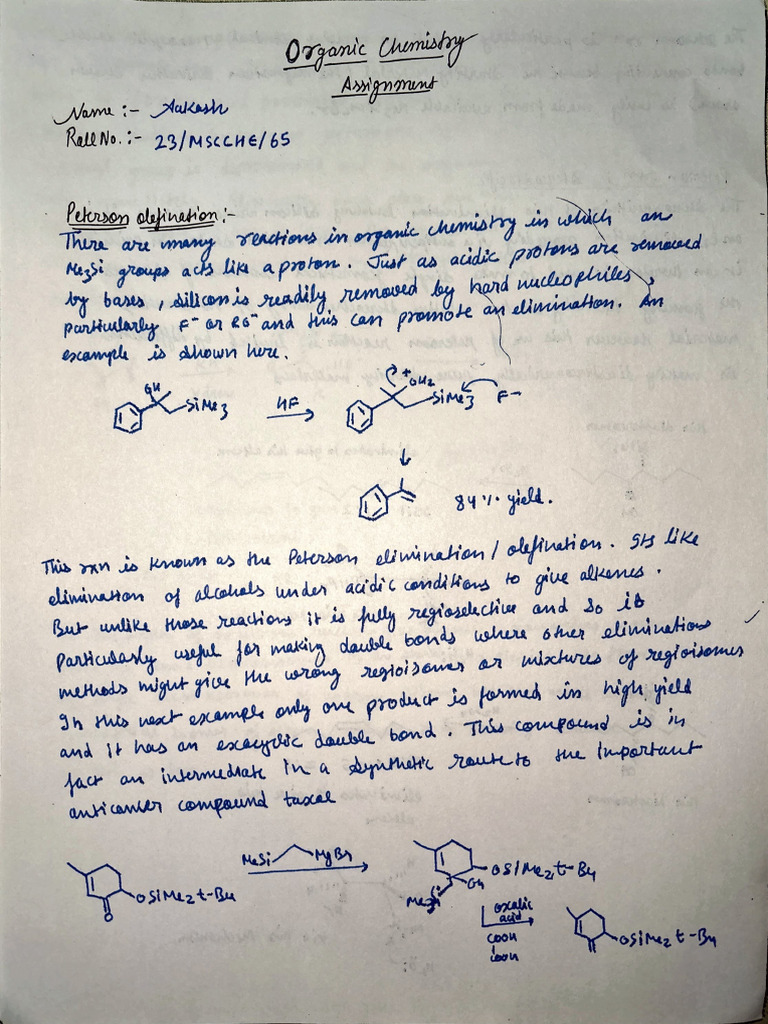 Organic Chemistry
Assignment
Name :- Aakash
Roll No. :- 23/MSCCHE/65
Peterson olefination :-
There are many reactions in organic chemistry in which an
Me3Si groups acts like a proton. Just as acidic protons are removed
by bases, silicon is readily removed by hard nucleophiles,
particularly F- or RO- and this can promote an elimination. An
example is shown here.
OH
SiMe3
HF
+
OH2
SiMe3
F-
84% yield.
This rxn is known as the Peterson elimination/olefination. Its like
elimination of alcohols under acidic conditions to give alkenes.
But unlike those reactions it is fully regioselective and so is
particularly useful for making double bonds where other eliminations
methods might give the wrong regioisomer or mixtures of regioisomers
In this next example only one product is formed in high yield
and it has an exocyclic double bond. This compound is in
fact an intermediate in a synthetic route to the important
anticancer compound taxol
MeSi MgBr
OSiMe2t-Bu
O
OSiMe2t-Bu
OH
oxalic
acid
COOH
COOH
OSiMe2t-Bu